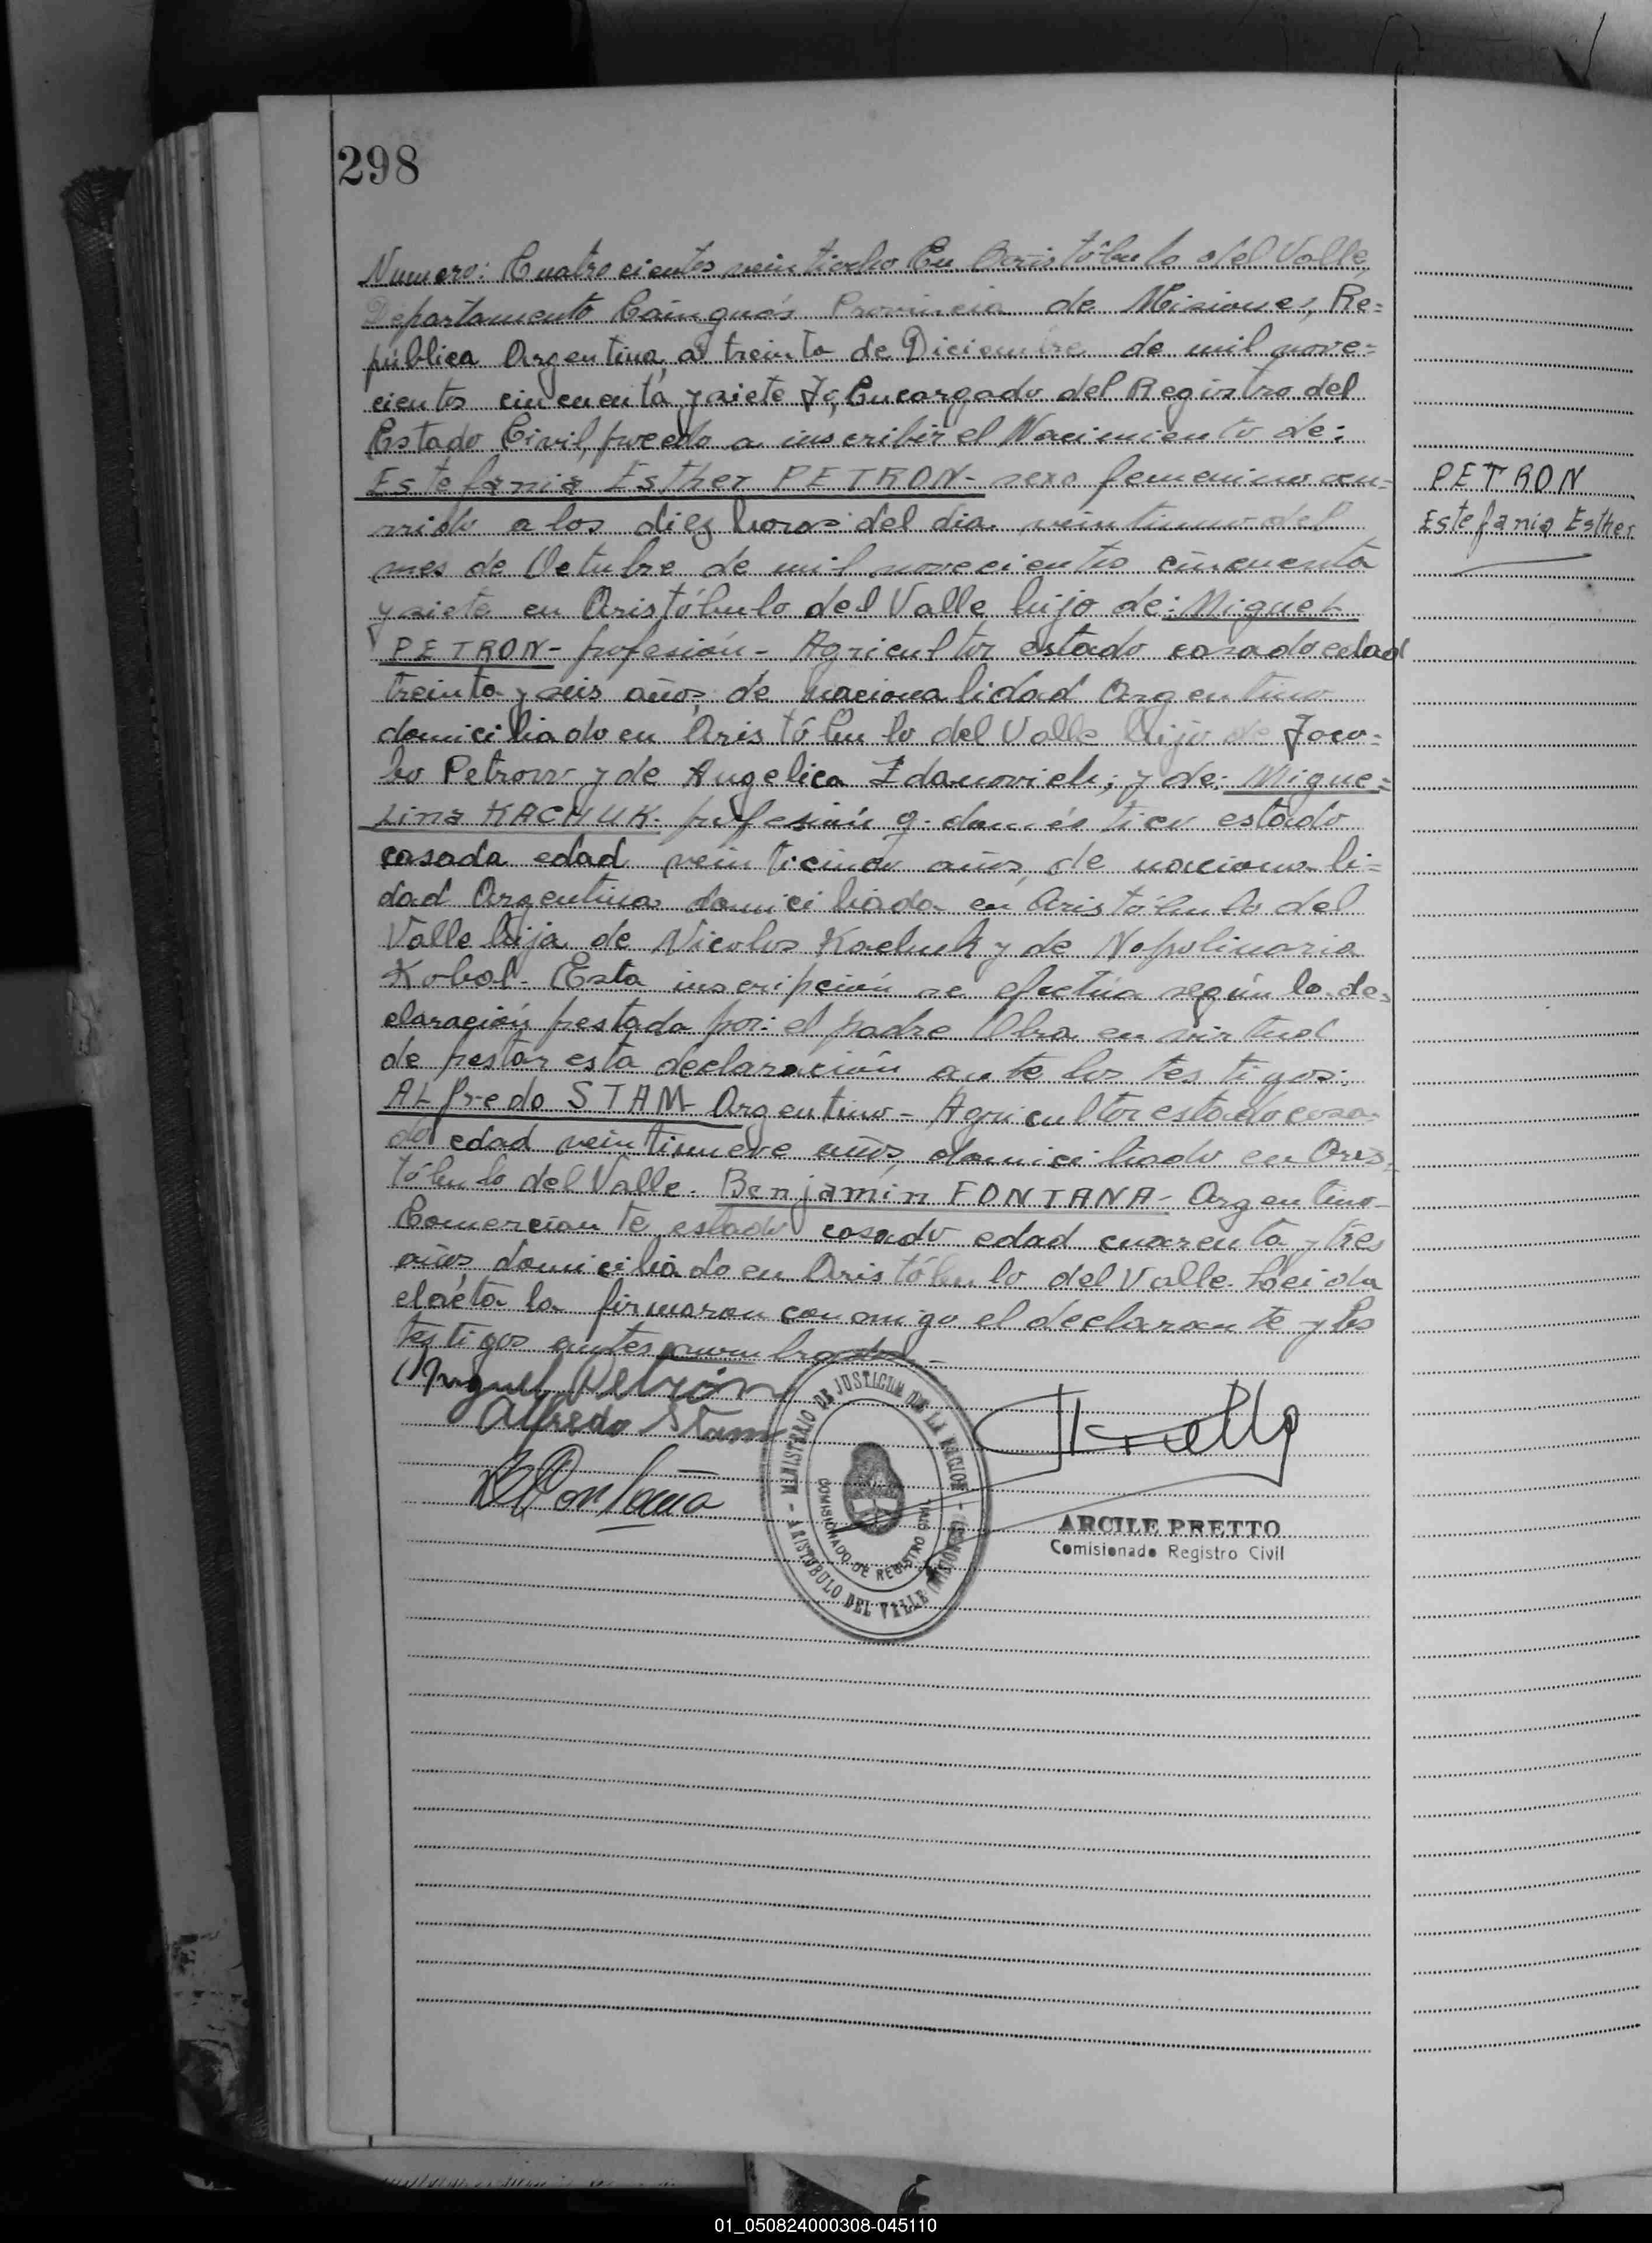 298
Numero: Cuatrocientos veintiocho En Aristóbulo del Valle,
Departamento Cainguás Provincia de Misiones, Re=
publica Argentina, a treinta de Diciembre de mil nove=
cientos cincuenta y siete Yo, Encargado del Registro del
Estado Civil, procedo a inscribir el Nacimiento de:
Estefania Esther PETRON- sexo femenino ocu=
rrido a los diez horas del dia veintiuno del
mes de Octubre de mil novecientos cincuenta
y siete en Aristóbulo del Valle hijo de: Miguel
PETRON- profesión- Agricultor estado casado edad
treinta y seis años, de nacionalidad Argentino
domiciliado en Aristóbulo del Valle hijo de Jaco=
bo Petrow y de Angelica Zdanovich; y de: Migue=
Lina KACHUK. profesión q. doméstico estado
casada edad veinticinco años, de nacionali=
dad Argentina domiciliada en Aristóbulo del
Valle hija de Nicolas Kachuk y de Napolinaria
Kobal. Esta inscripción se efectúa según la de=
claración prestada por: el padre Obra en virtud
de prestar esta declaración ante los testigos:
ALfredo STAM- Argentino- Agricultor estado casa=
do edad veintinueve años, domiciliado en Aris=
tóbulo del Valle. Benjamin FONTANA- Argentino-
Comerciante, estado casado edad cuarenta y tres
años, domiciliado en Aristóbulo del Valle. Leida
el acta la firmaron conmigo el declarante y los
testigos antes nombrados.-
Miguel Petrón
Alfredo Stam
B Fontana
MINISTERIO DE JUSTICIA DE LA NACION
COMISIONADO DE REGISTRO CIVIL
- ARISTOBULO DEL VALLE (MISIONES) -
ARCILE PRETTO
Comisionado Registro Civil
PETRON
Estefania Esther
01_050824000308-045110